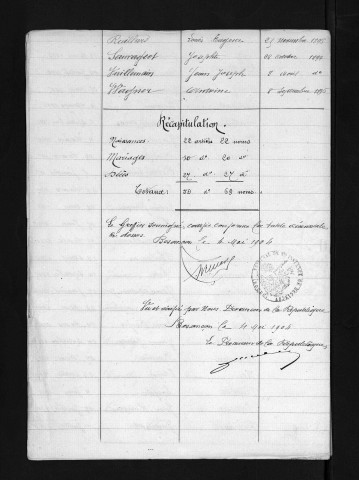 Louis Eugène 25 novembre 1895
Sauvageot Joseph octobre 1894
Vuillemain Jean Joseph 8 avril do
Wagner Antoine 8 septembre 1895
Récapitulation.
Naissances 22 articles 22 noms
Mariages 10 do 20 do
Décès 27 do 27 do
Totaux 59 do 69 noms
Le Greffier soussigné certifie conforme les tables décennales
Besançon le 4 Mai 1904
Vu et vérifié par Nous Procureur de la République
Besançon le 4 Mai 1904
Le Procureur de la République,